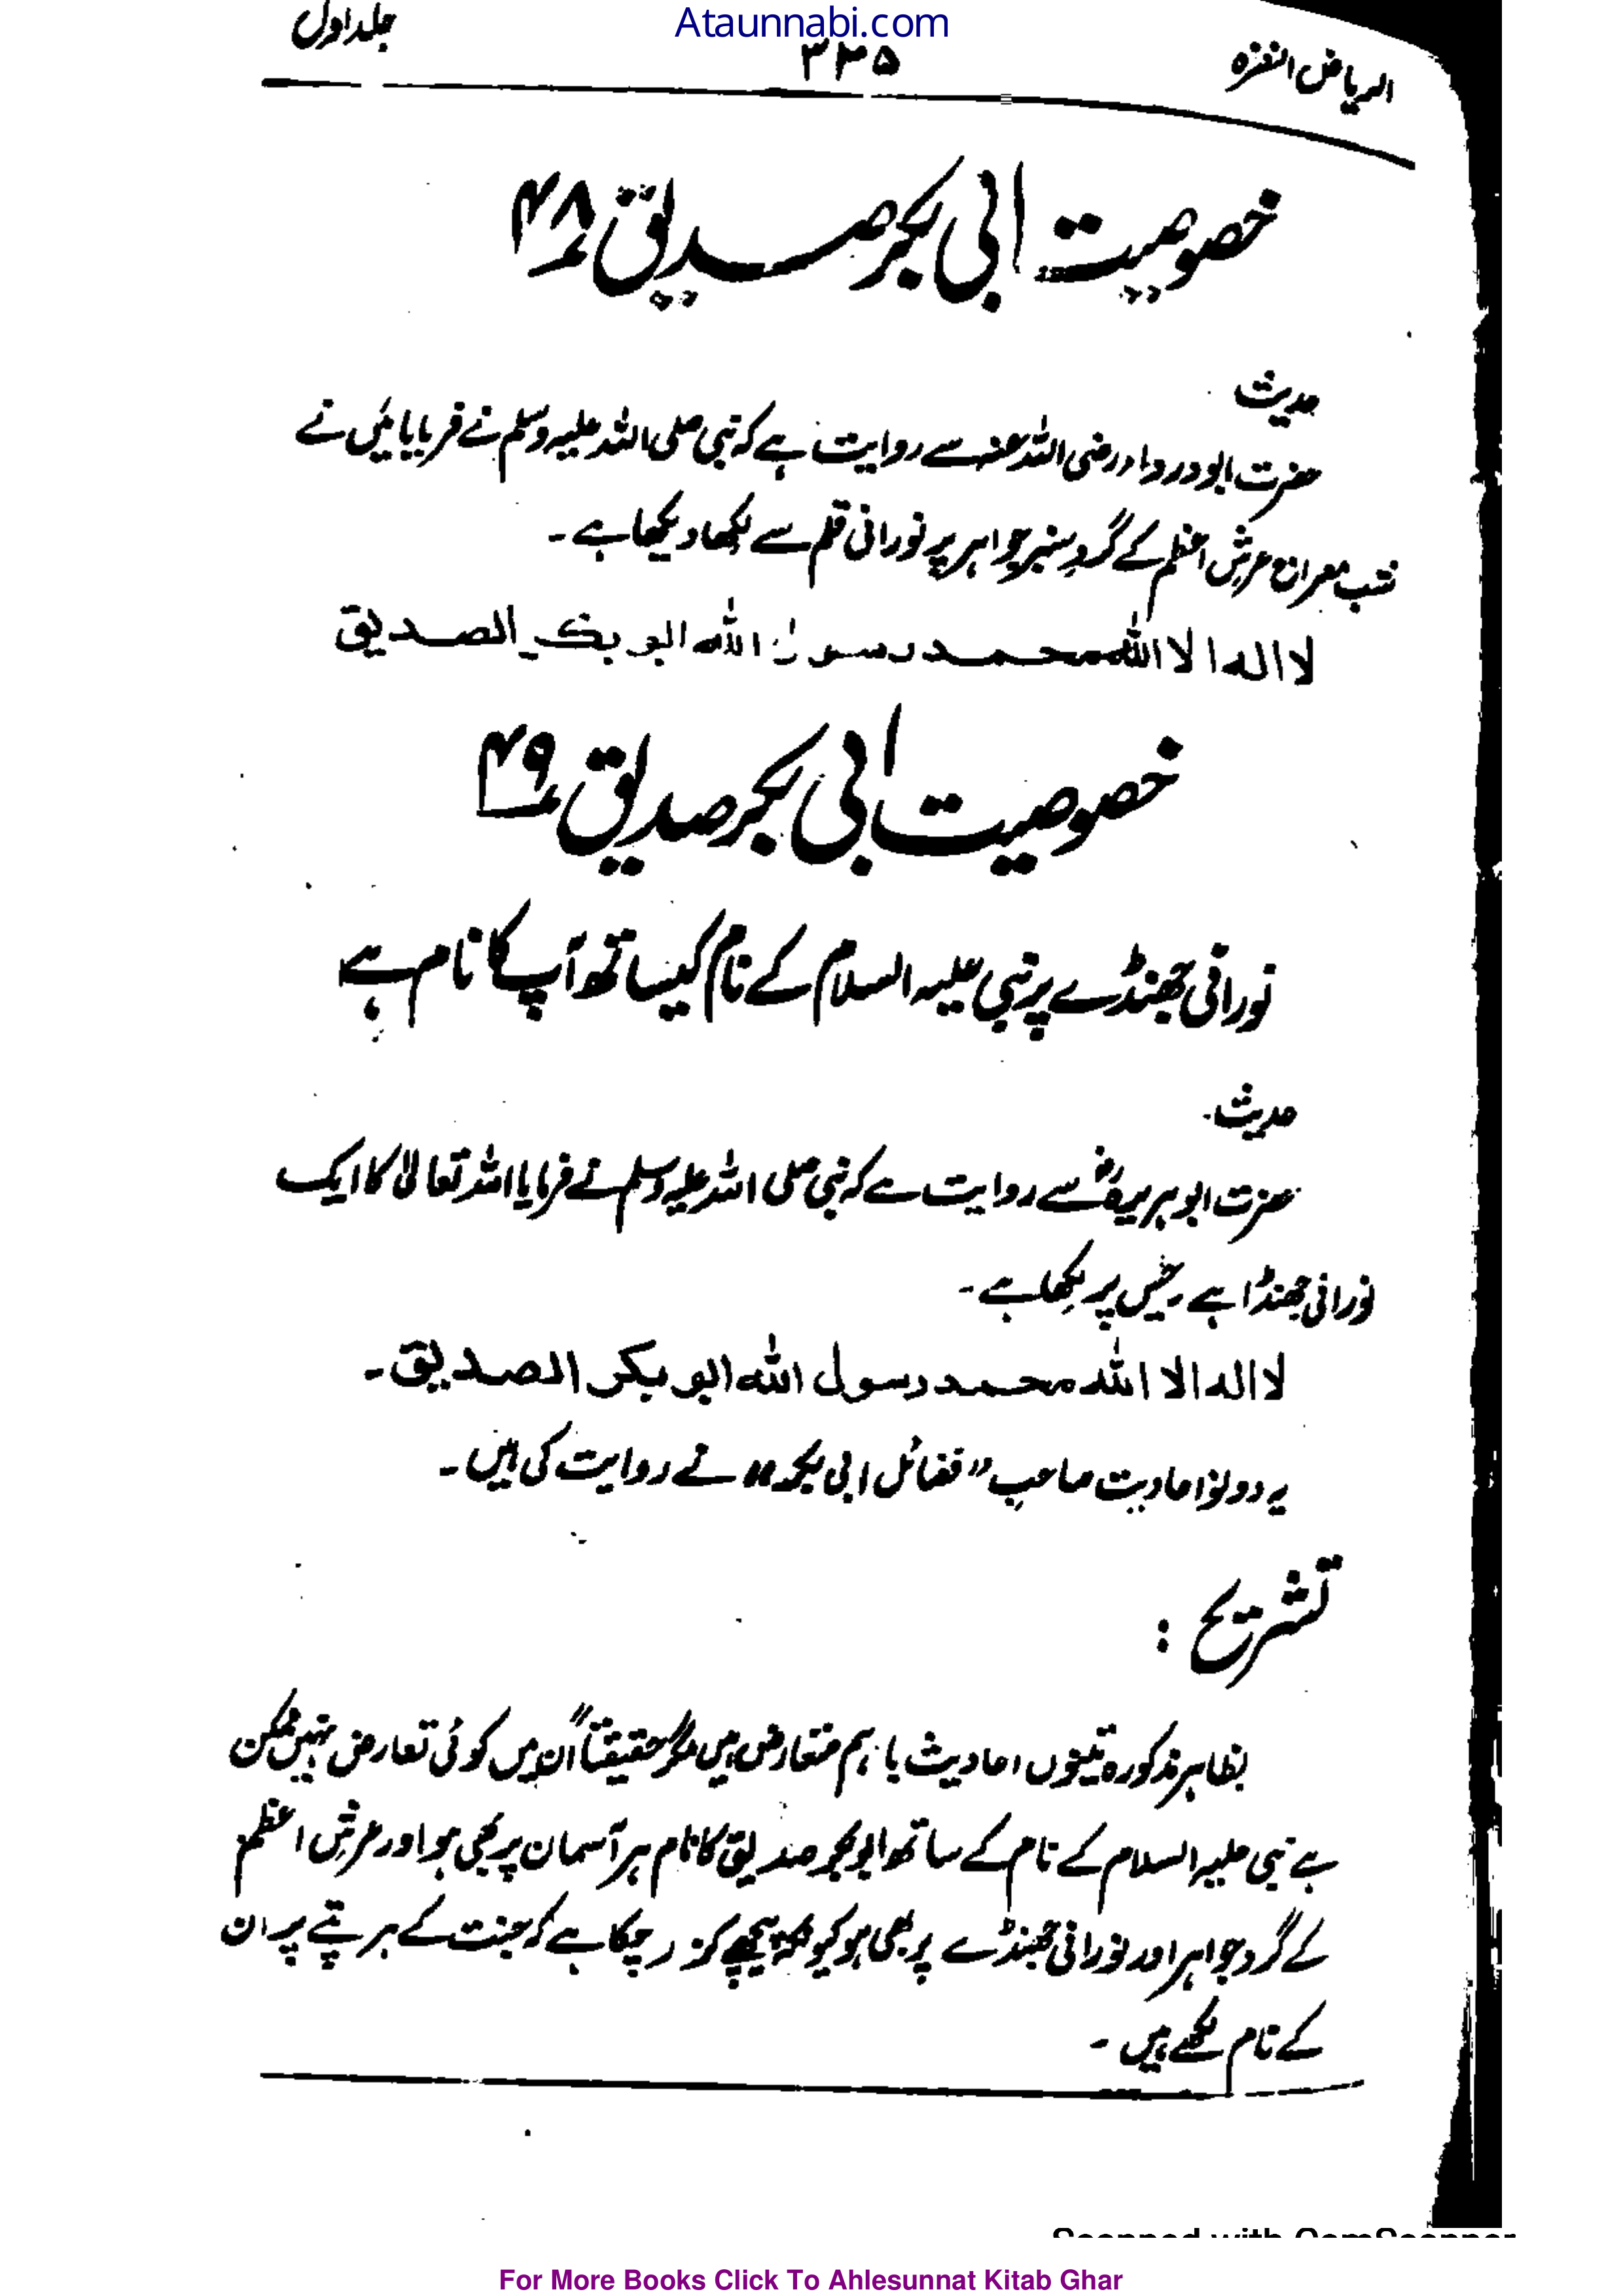 Ataunnabi.com
الریاض النضرہ ۳۳۵ جلد اول
خصوصیت ابی بکر صدیق ۴۸
حدیث
حضرت ابودرداء رضی اللہ عنہ سے روایت ہے کہ نبی صلی اللہ علیہ وسلم نے فرمایا میں نے
شب معراج عرش اعظم کے گرد سبز جواہر پر نورانی قلم سے لکھا دیکھا ہے۔
لا اله الا الله محمد رسول الله ابو بکر الصدیق
خصوصیت ابی بکر صدیق ۴۹
نورانی جھنڈے پر نبی علیہ السلام کے نام کیساتھ آپ کا نام ہے
حدیث۔
حضرت ابو ہریرہؓ سے روایت ہے کہ نبی صلی اللہ علیہ وسلم نے فرمایا اللہ تعالیٰ کا ایک
نورانی جھنڈا ہے جس پر لکھا ہے۔
لا اله الا الله محمد رسول الله ابو بکر الصدیق۔
یہ دونوں احادیث صاحبِ "فضائل ابی بکر" نے روایت کی ہیں۔
تشریح :
بظاہر مذکورہ تینوں احادیث باہم متعارض ہیں مگر حقیقتاً اُن میں کوئی تعارض نہیں ممکن
ہے نبی علیہ السلام کے نام کے ساتھ ابوبکر صدیق کا نام ہر آسمان پر بھی ہو اور عرش اعظم
کے گرد جواہر اور نورانی جھنڈے پر بھی ہو کیونکہ پیچھے گزر چکا ہے کہ جنت کے ہر پتے پر ان
کے نام لکھے ہیں۔
Scanned with CamScanner
For More Books Click To Ahlesunnat Kitab Ghar